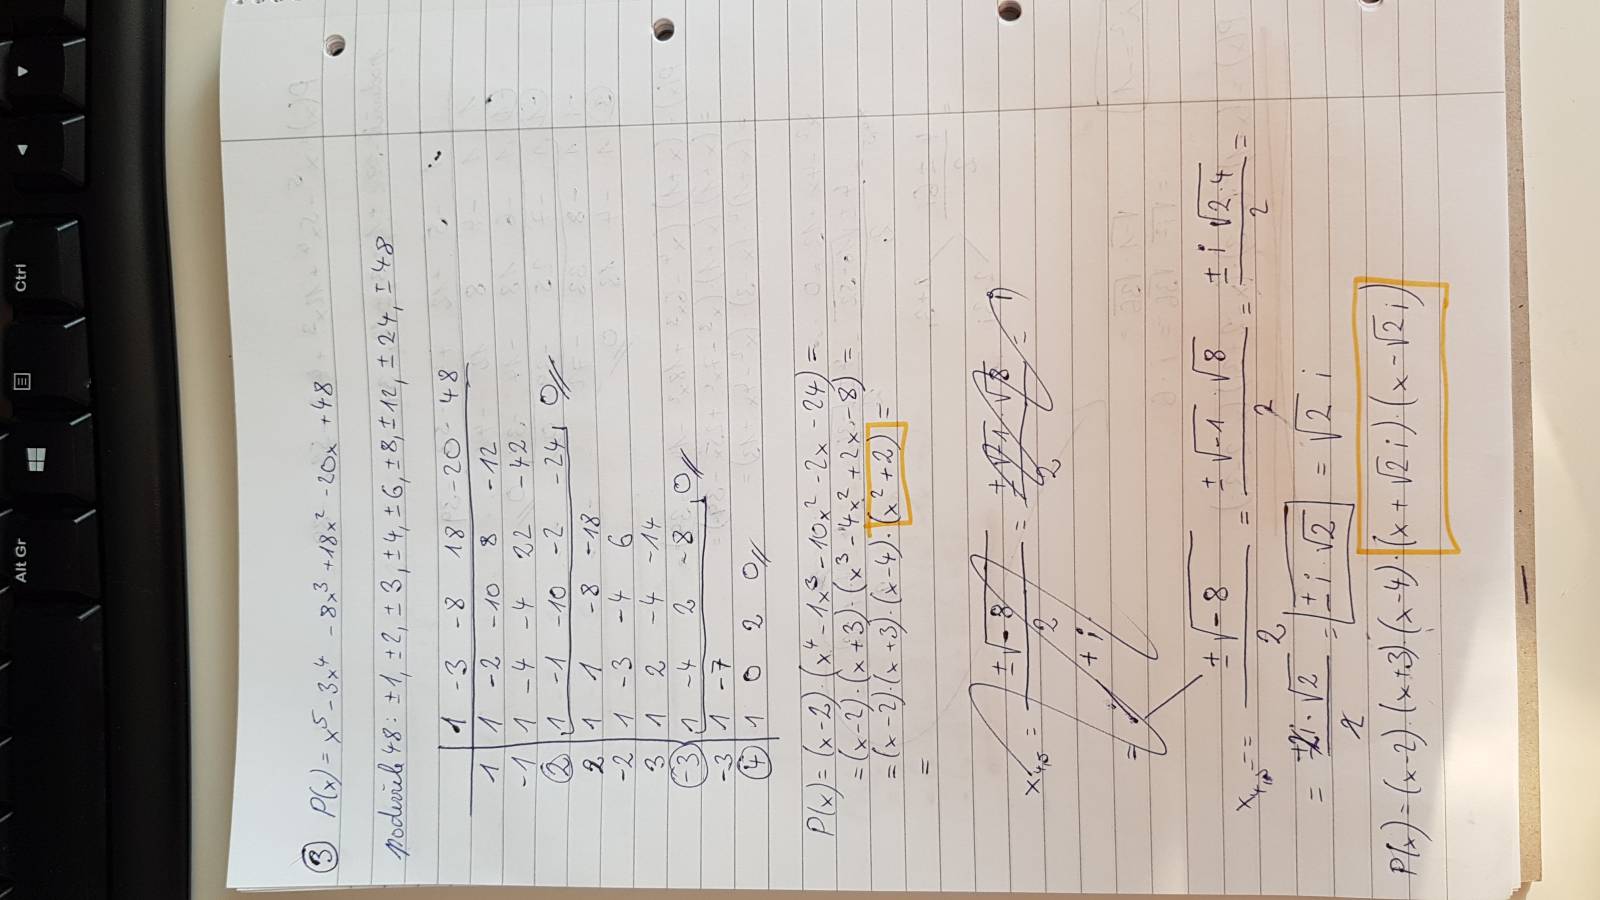 ③ P(x) = x⁵ - 3x⁴ - 8x³ + 18x² - 20x + 48
48: ±1, ±2, ±3, ±4, ±6, ±8, ±12, ±24, ±48
1 -3 -8 18 -20 48
1 1 -2 -10 8 -12
-1 1 -4 -4 22 -42
② 1 -1 -10 -2 -24 0//
2 1 1 -8 -18
-2 1 -3 -4 6
3 1 2 -4 -14
(-3) 1 -4 2 -8 0//
-3 1 -7
④ 1 0 2 0//
P(x) = (x-2)·(x⁴ - 1x³ - 10x² - 2x - 24) =
= (x-2)·(x+3)·(x³ - 4x² + 2x - 8) =
= (x-2)·(x+3)·(x-4)·(x²+2) =
=
x₄,₅ = ±√-8 / 2 = ±√-1·√8 / 2 = i)
= +i
x₄,₅ = ±√-8 / 2 = ±√-1·√8 / 2 = ±i√2·4 / 2 =
= ±2i·√2 / 2 = ±i·√2 = √2 i
P(x) = (x-2)·(x+3)·(x-4)·(x+√2 i)·(x-√2 i)
Alt Gr
Ctrl